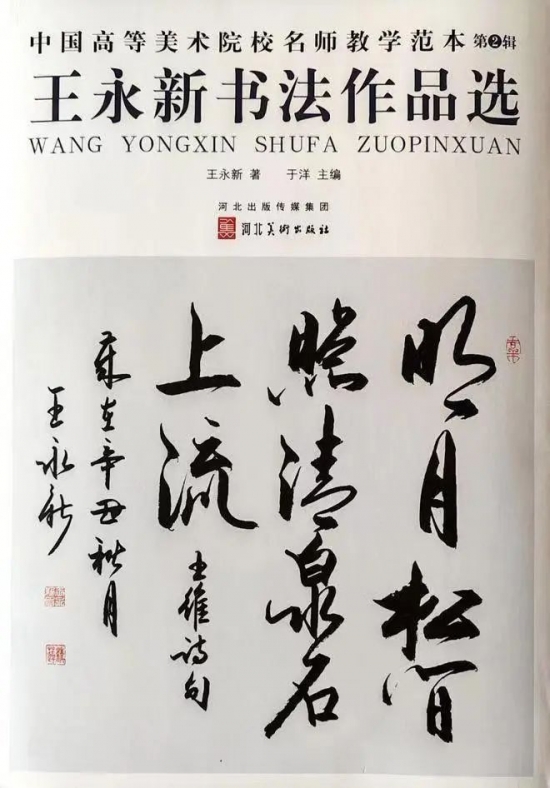 中国高等美术院校名师教学范本 第❷辑
王永新书法作品选
WANG YONGXIN SHUFA ZUOPINXUAN
王永新 著 于洋 主编
河北出版传媒集团
河北美术出版社
明月松间
照清泉石
上流
王维诗句
岁在辛丑秋月
王永新